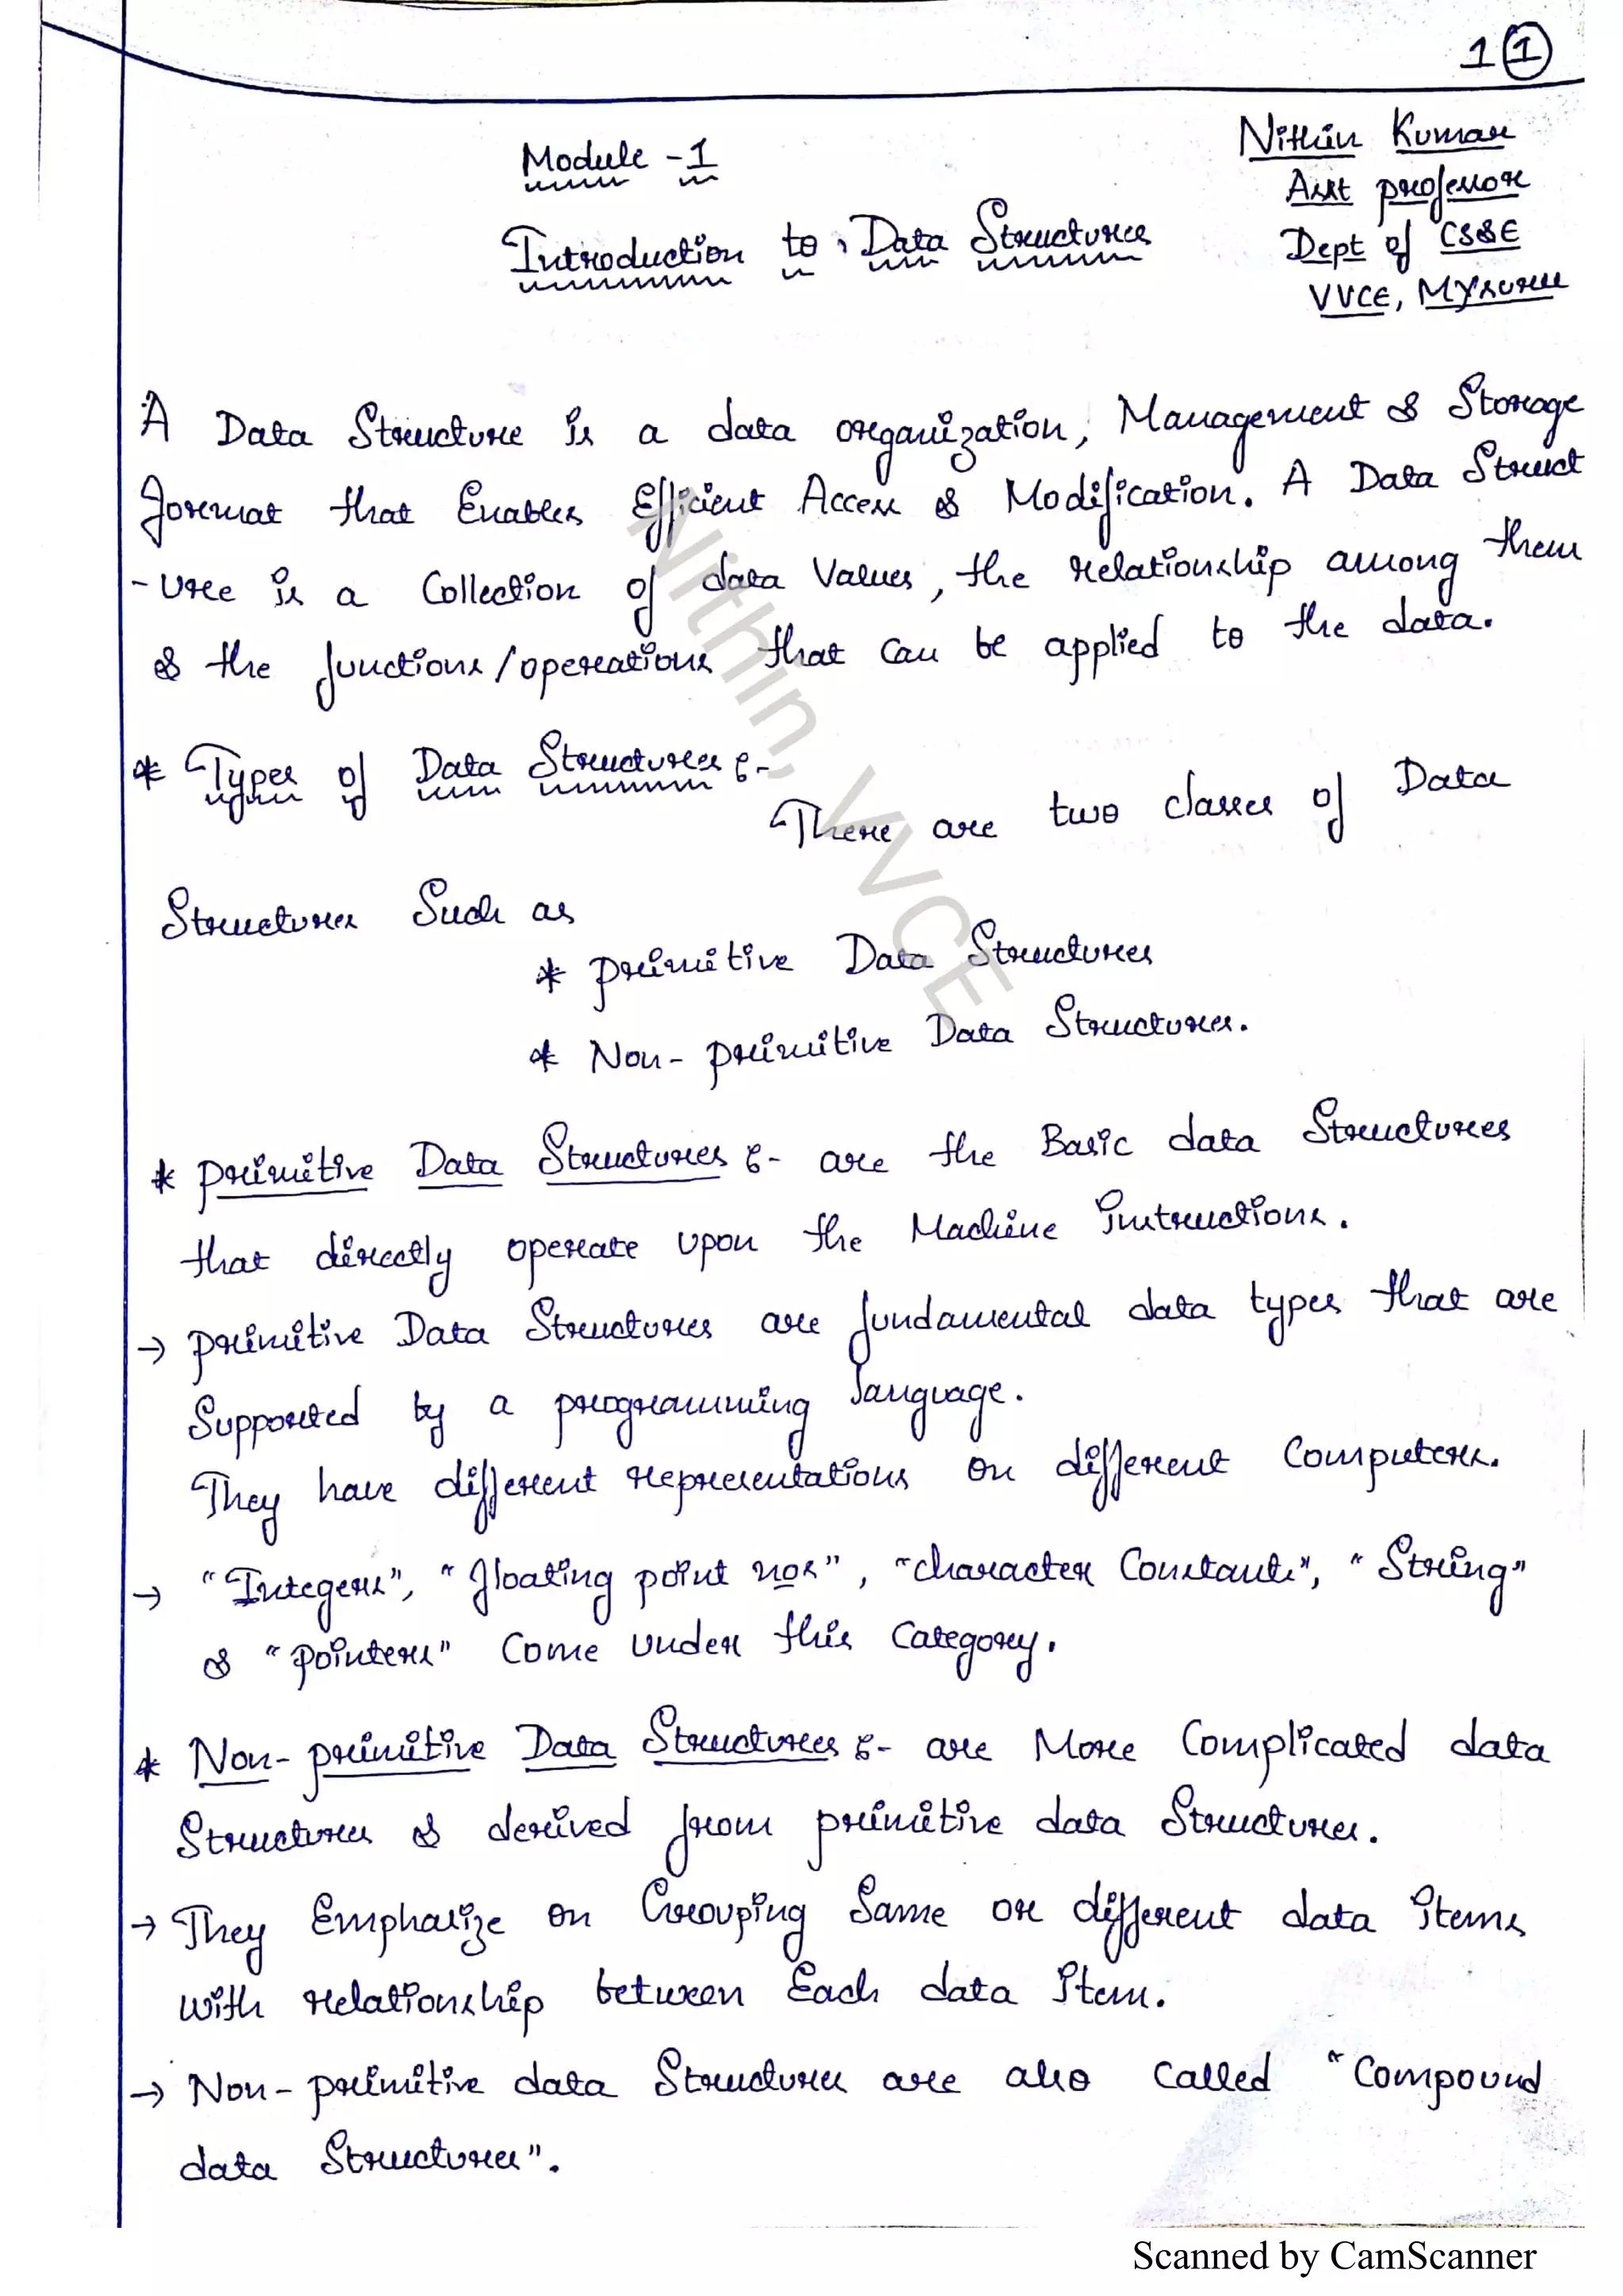 1 1
Module -1
Introduction to Data Structures
Nithin Kumar
Asst professor
Dept of CS&E
VVCE, Mysuru
A Data Structure is a data organization, Management & Storage
format that Enables Efficient Access & Modification. A Data Struct
-ure is a Collection of data Values, the relationship among them
& the functions/operations that can be applied to the data.
* Types of Data Structures :-
There are two classes of Data
Structures Such as
* primitive Data Structures
* Non-primitive Data Structures.
* primitive Data Structures :- are the Basic data Structures
that directly operate upon the Machine Instructions.
→ primitive Data Structures are fundamental data types that are
Supported by a programming language.
They have different representations on different Computers.
→ "Integers", "floating point nos", "character Constants", "String"
& "pointers" Come under this Category.
* Non-primitive Data Structures :- are More Complicated data
Structures & derived from primitive data Structures.
→ They Emphasize on Grouping Same or different data items
with relationship between Each data Item.
→ Non-primitive data Structures are also called "Compound
data Structures".
Nithin, VVCE
Scanned by CamScanner